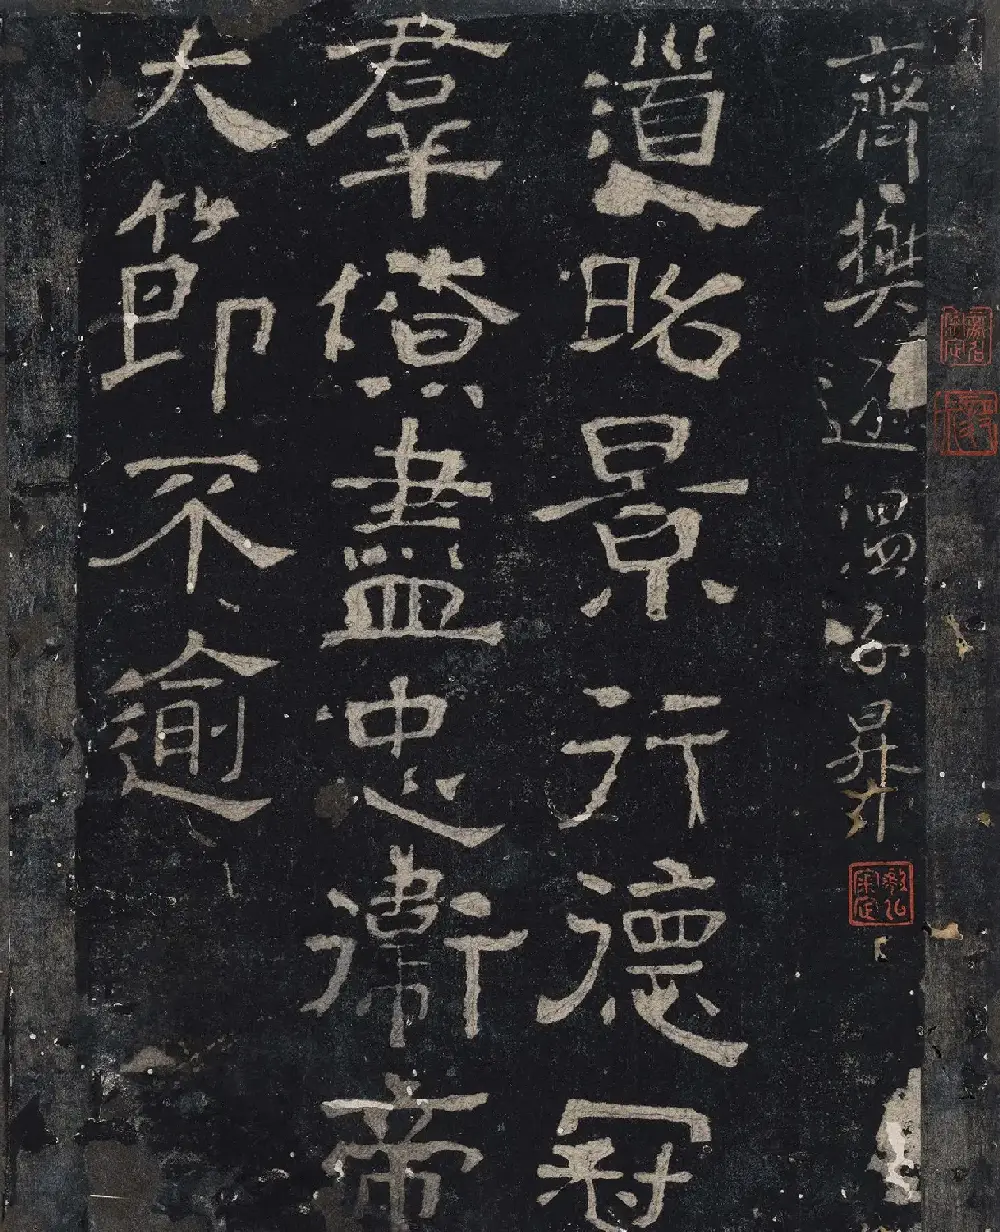 齊撰溫子昇
道昭景行德冠
羣僚盡忠衛帝
大節不逾